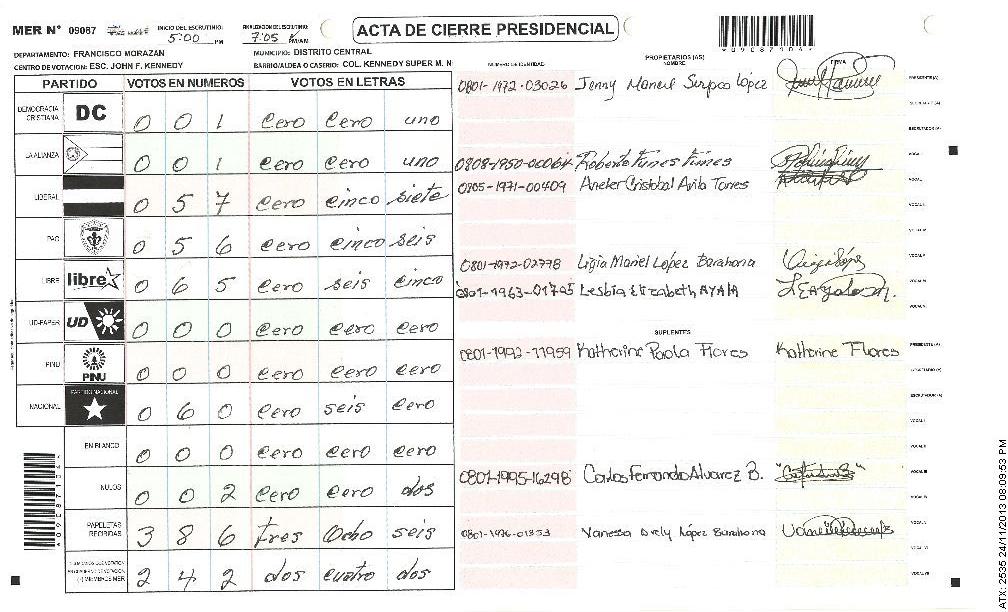 MER N° 09087
INICIO DEL ESCRUTINIO:
5:00 PM
FINALIZACION DEL ESCRUTINIO:
7:05 PM/AM
ACTA DE CIERRE PRESIDENCIAL
DEPARTAMENTO: FRANCISCO MORAZAN
MUNICIPIO: DISTRITO CENTRAL
CENTRO DE VOTACION: ESC. JOHN F. KENNEDY
BARRIO/ALDEA O CASERIO: COL. KENNEDY SUPER M. N
PARTIDO VOTOS EN NUMEROS VOTOS EN LETRAS
DEMOCRACIA CRISTIANA DC 0 0 1 cero cero uno
LA ALIANZA 0 0 1 cero cero uno
LIBERAL 0 5 7 cero cinco siete
PAC 0 5 6 cero cinco seis
LIBRE libre 0 6 5 cero seis cinco
UD-FAPER UD 0 0 0 cero cero cero
PINU PINU 0 0 0 cero cero cero
NACIONAL PARTIDO NACIONAL 0 6 0 cero seis cero
EN BLANCO 0 0 0 cero cero cero
NULOS 0 0 2 cero cero dos
PAPELETAS RECIBIDAS 3 8 6 tres Ocho seis
(+) MIEMBROS MER 2 4 2 dos cuatro dos
NUMERO DE IDENTIDAD PROPIETARIOS (AS) NOMBRE FIRMA
0801-1972-03026 Jenny Manuel López PRESIDENTE(A)
SECRETARIO(A)
ESCRUTADOR (A)
0808-1950-00064 Roberto Funes Funes VOCAL I
0805-1971-00409 Aneler Cristobal Avila Torres VOCAL II
0801-1972-02778 Ligia Mariel López Barahona
0801-1963-01705 Lesbia Elizabeth AYALA
SUPLENTES
0801-1992-11959 Katherine Paola Flores Katherine Flores PRESIDENTE(A)
SECRETARIO(A)
ESCRUTADOR (A)
0801-1995-16298 Carlos Fernando Alvarez B.
0801-1996-01353 Vanessa López Barahona
ATX: 2535 24/11/2013 08:09:53 PM